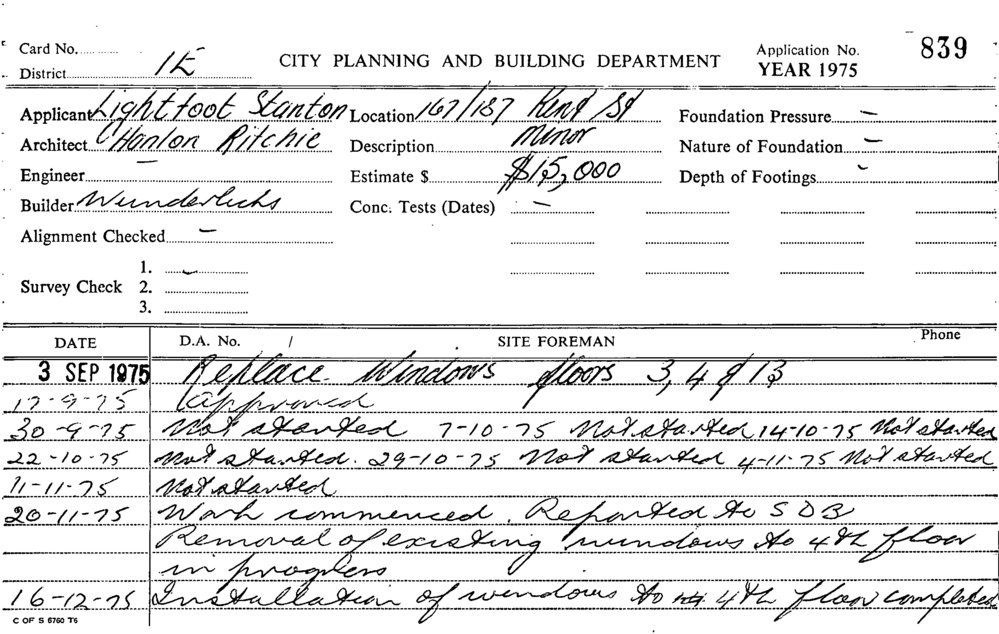 Card No.
District 1E
CITY PLANNING AND BUILDING DEPARTMENT
Application No. 839
YEAR 1975
Applicant Lightfoot Stanton Location 167/187 Kent St Foundation Pressure —
Architect O'Hanlon Ritchie Description Minor Nature of Foundation —
Engineer — Estimate $ $15,000 Depth of Footings -
Builder Wunderlichs Conc. Tests (Dates) —
Alignment Checked —
1.
Survey Check 2.
3.
DATE D.A. No. / SITE FOREMAN Phone
3 SEP 1975 Replace Windows floors 3, 4 & 13
17-9-75 Approved
30-9-75 Not started 7-10-75 Not started 14-10-75 Not started
22-10-75 Not started. 29-10-75 Not started 4-11-75 Not started
11-11-75 Not started
20-11-75 Work commenced. Reported to S D B
Removal of existing windows to 4th floor
in progress
16-12-75 Installation of windows to 4th floor completed
C OF S 6760 T6